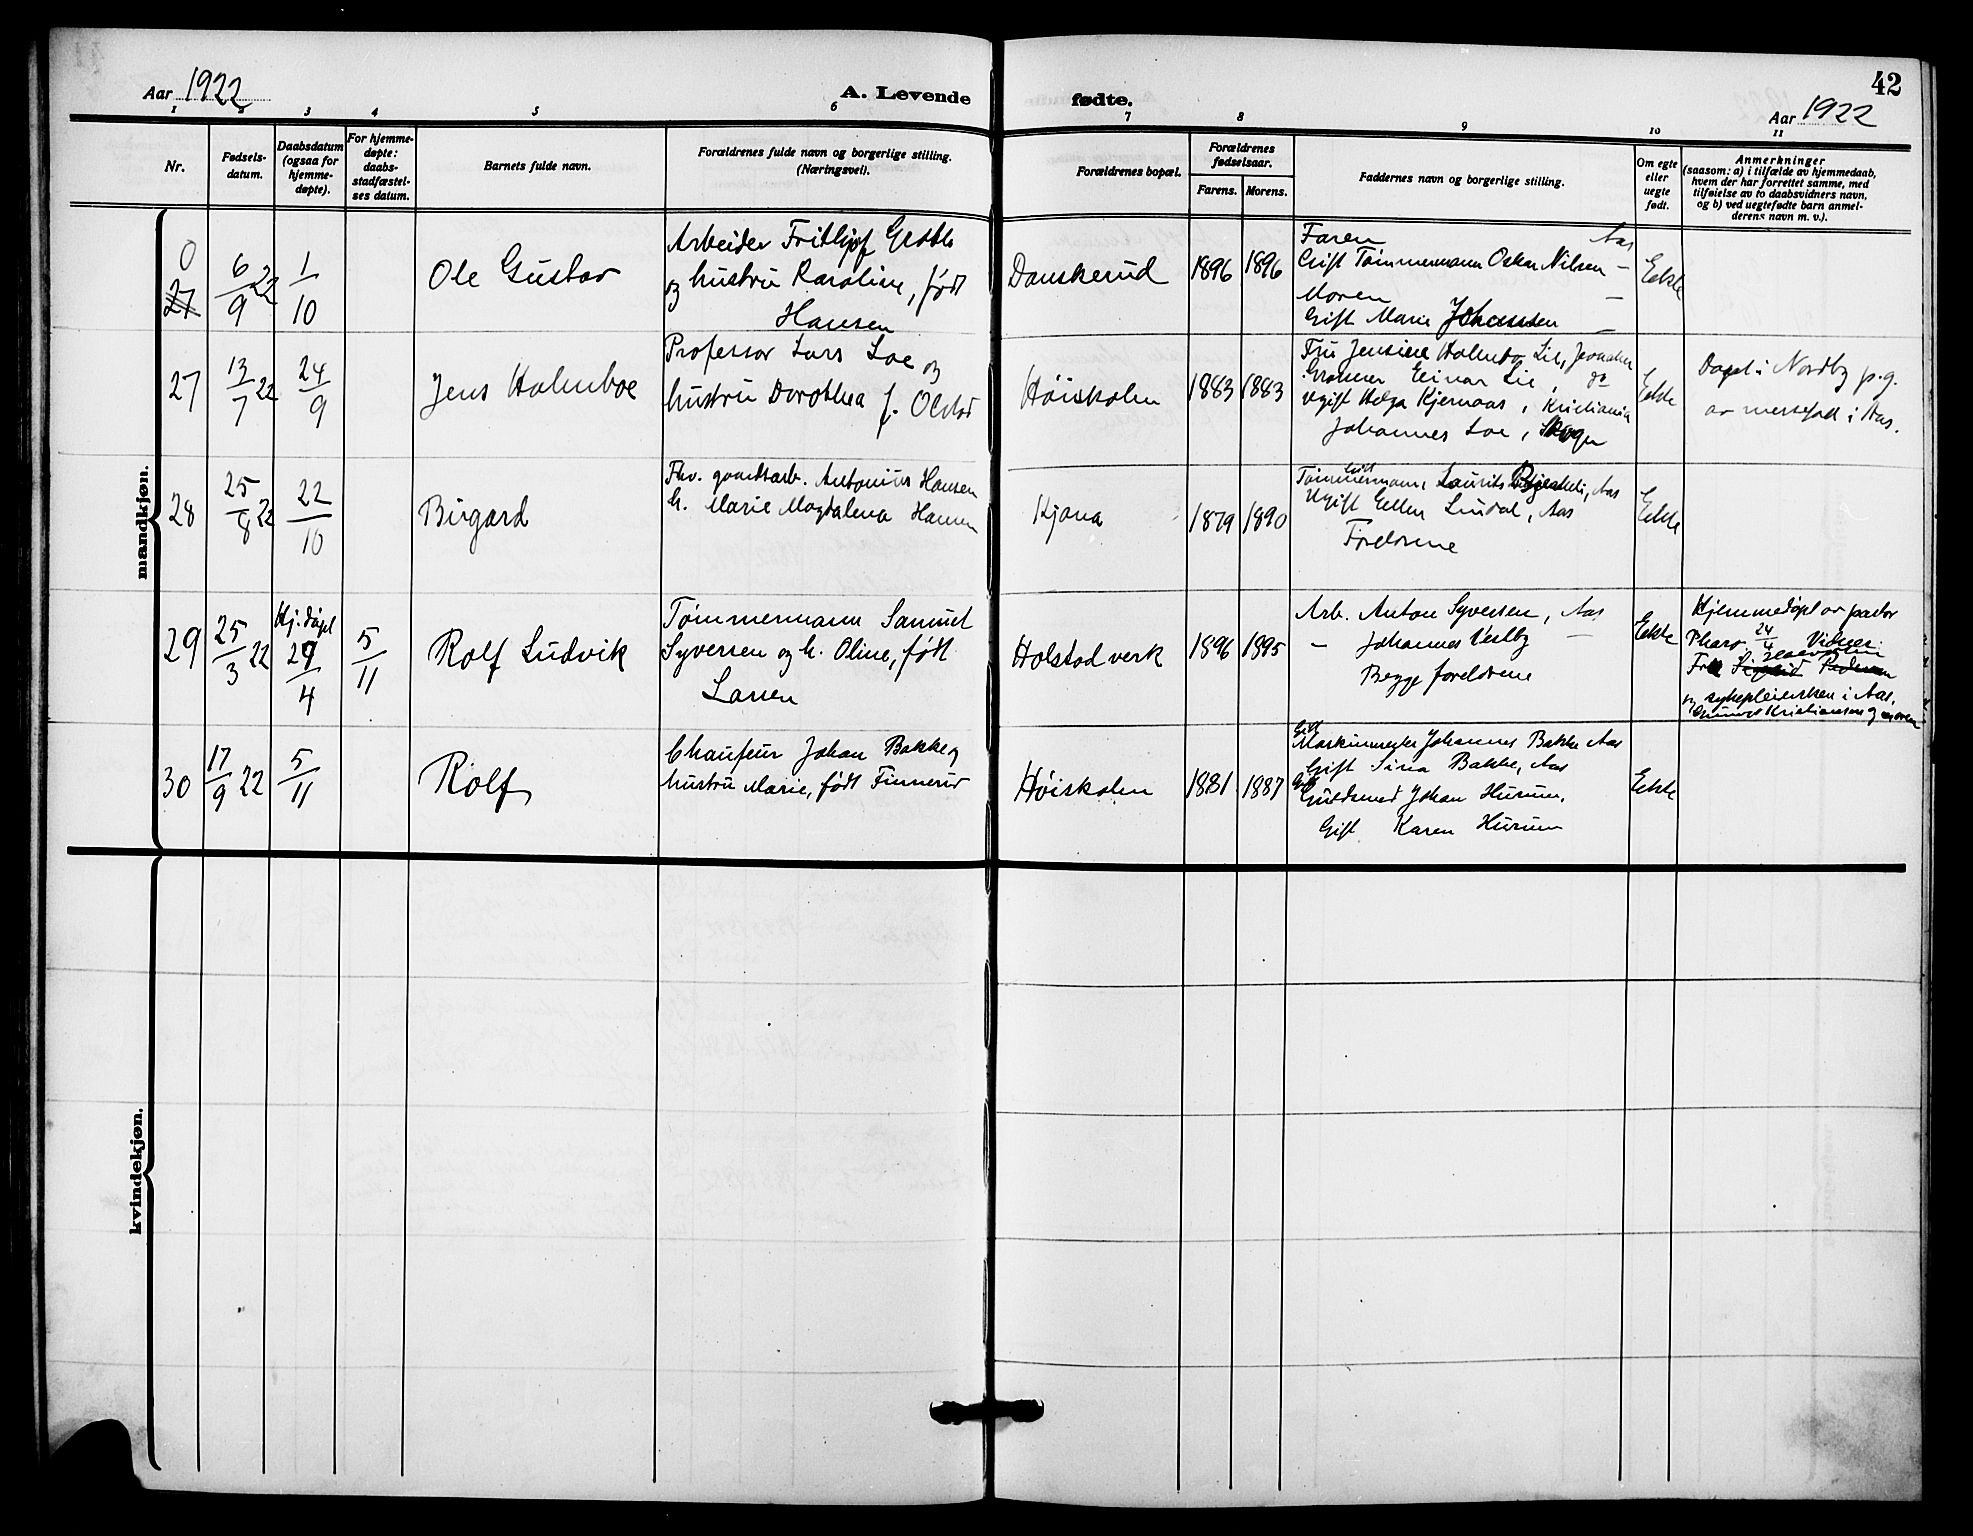 Aar 1922
A. Levende
fødte.
42
Aar 1922
1 2 3 4 5 6 7 8 9 10 11
Nr.
Fødsels-
datum.
Daabsdatum
(ogsaa for
hjemme-
døpte).
For hjemme-
døpte:
daabs-
stadfæstel-
ses datum.
Barnets fulde navn.
Forældrenes fulde navn og borgerlige stilling.
(Næringsvei).
Forældrenes bopæl.
Forældrenes
fødselsaar.
Farens.
Morens.
Faddernes navn og borgerlige stilling.
Om egte
eller
uegte
født.
Anmerkninger
(saasom: a) i tilfælde av hjemmedaab,
hvem der har forrettet samme, med
tilføielse av to daabsvidners navn,
og b) ved uegtefødte barn anmel-
derens navn m. v.).
mandkjøn.
0
27
6/9 22
1/10
Ole Gustav
Arbeider Frithjof
og hustru Karoline, født
Hansen
Danskerud
1896
1896
Faren Aas
Gift Tømmermann Oskar Nilsen —
Moren —
Gift Marie Johansen —
Ekte
27
13/7 22
24/9
Jens Holmboe
Professor Lars Loe og
hustru Dorothea f. Olstad
Høiskolen
1883
1883
Fru Jensine Holmboe Lie,
Einar Lie, do
Ugift Helga Kjernaas, Kristiania
Johannes Loe, Skogn
Ekte
Døpt i Nordby p.g.
av messefall i Aas.
28
25/8 22
22/10
Birgard
Fhv. gaardsarb. Antonius Hansen
h. Marie Magdalena Hansen
Kjona
1879
1890
Gift
Tømmermann, Laurits Aas
Ugift Ellen Lindal, Aas
Foreldrene
Ekte
29
25/3 22
Hj.døpt
29/4
5/11
Rolf Ludvik
Tømmermann Samuel
Syversen og h. Oline, født
Larsen
Holstad verk
1896
1895
Arb. Anton Syversen, Aas
— Johannes Vestby —
Begge foreldrene
Ekte
Hjemmedøpt av pastor
Pharo 24/4 Vidner:
Sigrid Pedersen
og sykepleiersken i Aas,
Kristiansen og moren
30
17/9 22
5/11
Rolf
Chaufeur Johan Bakke og
hustru Marie, født Finnerud
Høiskolen
1881
1887
Gift
Maskinmester Johannes Bakke Aas
Gift Sina Bakke, Aas
Gift
Guldsmed Johan Husum,
Gift Karen Husum
Ekte
kvindekjøn.